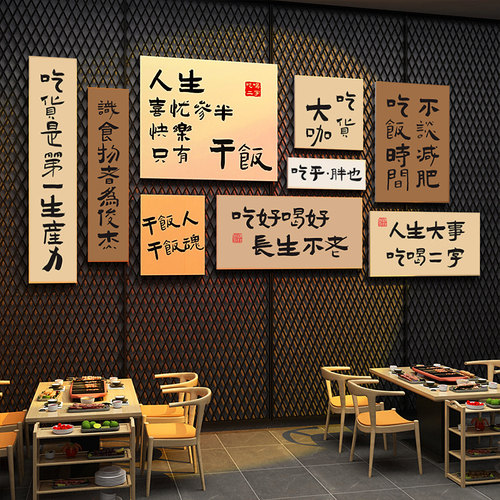 吃貨是第一生產力
識食物者為俊杰
人生
喜忧參半
快樂
只有 干飯
吃喝
二字
吃貨
大咖
吃乎·胖也
不談減肥
吃飯時間
干飯人
干飯魂
吃好喝好
長生不老
人生大事
吃喝二字